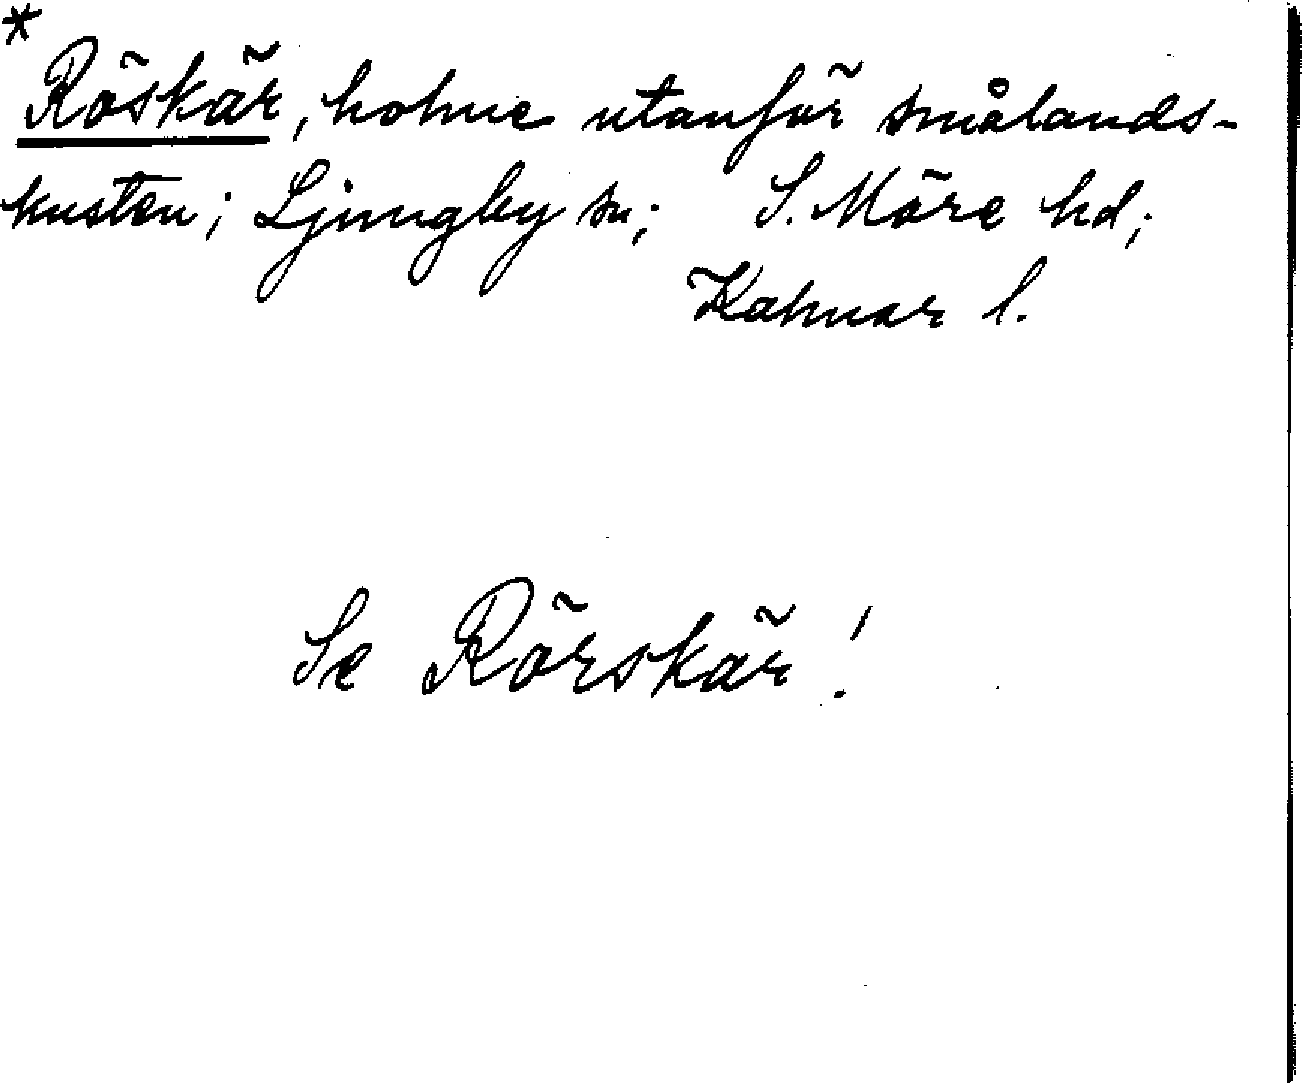 *
Röskär, holme utanför smålands-
kusten; Ljungby sn; S. Möre hd;
Kalmar l.
Se Rörskär!